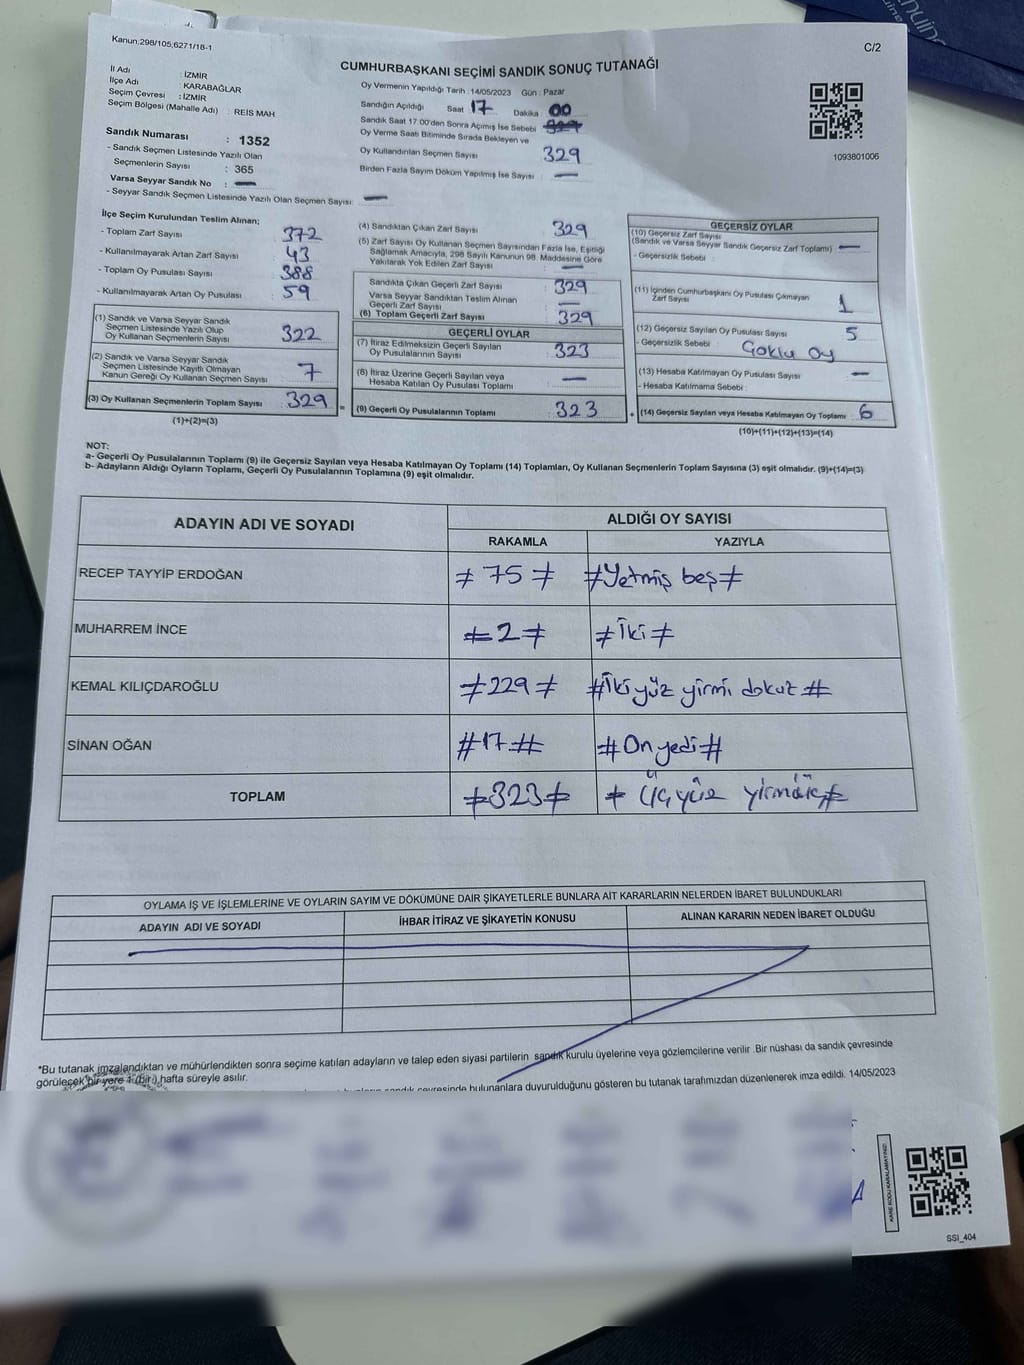 Kanun;298/105;6271/18-1
C/2
CUMHURBAŞKANI SEÇİMİ SANDIK SONUÇ TUTANAĞI
İl Adı : İZMİR
İlçe Adı : KARABAĞLAR
Seçim Çevresi : İZMİR
Seçim Bölgesi (Mahalle Adı) : REİS MAH
Sandık Numarası : 1352
- Sandık Seçmen Listesinde Yazılı Olan
Seçmenlerin Sayısı : 365
Varsa Seyyar Sandık No : —
- Seyyar Sandık Seçmen Listesinde Yazılı Olan Seçmen Sayısı: —
Oy Vermenin Yapıldığı Tarih : 14/05/2023 Gün : Pazar
Sandığın Açıldığı Saat 17 Dakika 00
Sandık Saat 17:00'den Sonra Açımış İse Sebebi
Oy Verme Saati Bitiminde Sırada Bekleyen ve
Oy Kullandırılan Seçmen Sayısı 329
Birden Fazla Sayım Döküm Yapılmış İse Sayısı : —
1093801006
İlçe Seçim Kurulundan Teslim Alınan;
- Toplam Zarf Sayısı : 372
- Kullanılmayarak Artan Zarf Sayısı : 43
- Toplam Oy Pusulası Sayısı : 388
- Kullanılmayarak Artan Oy Pusulası : 59
(1) Sandık ve Varsa Seyyar Sandık
Seçmen Listesinde Yazılı Olup
Oy Kullanan Seçmenlerin Sayısı : 322
(2) Sandık ve Varsa Seyyar Sandık
Seçmen Listesinde Kayıtlı Olmayan
Kanun Gereği Oy Kullanan Seçmen Sayısı : 7
(3) Oy Kullanan Seçmenlerin Toplam Sayısı : 329 =
(1)+(2)=(3)
(4) Sandıktan Çıkan Zarf Sayısı : 329
(5) Zarf Sayısı Oy Kullanan Seçmen Sayısından Fazla İse, Eşitliği
Sağlamak Amacıyla, 298 Sayılı Kanunun 98. Maddesine Göre
Yakılarak Yok Edilen Zarf Sayısı : —
Sandıkta Çıkan Geçerli Zarf Sayısı : 329
Varsa Seyyar Sandıktan Teslim Alınan
Geçerli Zarf Sayısı : —
(6) Toplam Geçerli Zarf Sayısı : 329
GEÇERLİ OYLAR
(7) İtiraz Edilmeksizin Geçerli Sayılan
Oy Pusulalarının Sayısı : 323
(8) İtiraz Üzerine Geçerli Sayılan veya
Hesaba Katılan Oy Pusulası Toplamı : —
(9) Geçerli Oy Pusulalarının Toplamı : 323 +
GEÇERSİZ OYLAR
(10) Geçersiz Zarf Sayısı
(Sandık ve Varsa Seyyar Sandık Geçersiz Zarf Toplamı) : —
- Geçersizlik Sebebi :
(11) İçinden Cumhurbaşkanı Oy Pusulası Çıkmayan
Zarf Sayısı : 1
(12) Geçersiz Sayılan Oy Pusulası Sayısı : 5
- Geçersizlik Sebebi : Çoklu oy
(13) Hesaba Katılmayan Oy Pusulası Sayısı : —
- Hesaba Katılmama Sebebi :
(14) Geçersiz Sayılan veya Hesaba Katılmayan Oy Toplamı : 6
(10)+(11)+(12)+(13)=(14)
NOT:
a- Geçerli Oy Pusulalarının Toplamı (9) ile Geçersiz Sayılan veya Hesaba Katılmayan Oy Toplamı (14) Toplamları, Oy Kullanan Seçmenlerin Toplam Sayısına (3) eşit olmalıdır. (9)+(14)=(3)
b- Adayların Aldığı Oyların Toplamı, Geçerli Oy Pusulalarının Toplamına (9) eşit olmalıdır.
ADAYIN ADI VE SOYADI ALDIĞI OY SAYISI
RAKAMLA YAZIYLA
RECEP TAYYİP ERDOĞAN ≠ 75 ≠ ≠Yetmiş beş≠
MUHARREM İNCE ≠2≠ ≠İki≠
KEMAL KILIÇDAROĞLU ≠229≠ #İki yüz yirmi dokuz #
SİNAN OĞAN #17# #On yedi#
TOPLAM ≠323≠ ≠ Üç yüz yirmi üç≠
OYLAMA İŞ VE İŞLEMLERİNE VE OYLARIN SAYIM VE DÖKÜMÜNE DAİR ŞİKAYETLERLE BUNLARA AİT KARARLARIN NELERDEN İBARET BULUNDUKLARI
ADAYIN ADI VE SOYADI İHBAR İTİRAZ VE ŞİKAYETİN KONUSU ALINAN KARARIN NEDEN İBARET OLDUĞU
*Bu tutanak imzalandıktan ve mühürlendikten sonra seçime katılan adayların ve talep eden siyasi partilerin sandık kurulu üyelerine veya gözlemçilerine verilir .Bir nüshası da sandık çevresinde
görülecek bir yere 1 (bir) hafta süreyle asılır.
sandık çevresinde bulunanlara duyurulduğunu gösteren bu tutanak tarafımızdan düzenlenerek imza edildi. 14/05/2023
KARE KODU KARALAMAYINIZ!
SSI_404